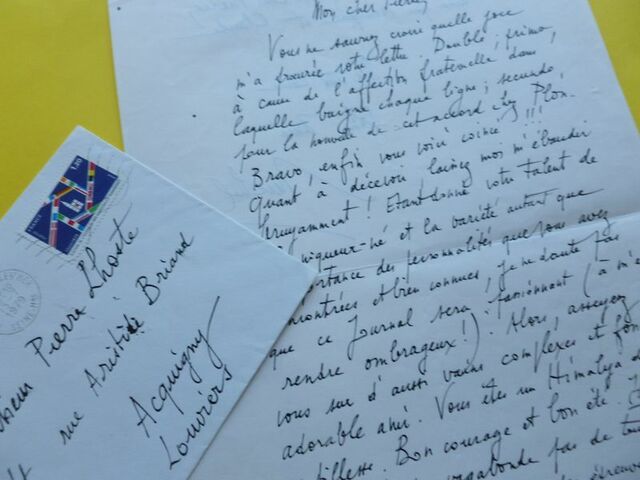 Mon cher Pierre,
Vous ne sauriez croire quelle joie
m'a procurée votre lettre. Double; primo
à cause de l'affection fraternelle dans
laquelle baigne chaque ligne; secundo,
pour la nouvelle de cet accord chez Plon.
Bravo, enfin vous voici coincé!!!
Quant à décevoir laissez moi m'ébaudir
bruyamment! Etant donné votre talent de
chroniqueur-né et la variété autant que
l'importance des personnalités que vous avez
rencontrées et bien connues, je ne doute pas
que ce Journal sera passionnant (à m'en
rendre ombrageux!). Alors, asseyez
vous sur d'aussi vains complexes et
adorable ami. Vous êtes un Himalaya
Bon courage et bon été.
vagabonde pas de
1,20
FRANCE
1979
Monsieur Pierre Lhoste
rue Aristide Briand
Acquigny
Louviers